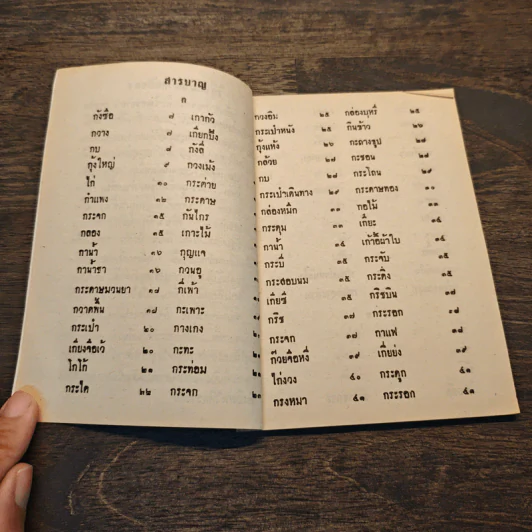 สารบาญ
ก
กังซือ ๗ เกากัว
กวาง ๗ เกี๊ยกบั๊ง
กบ ๘ กังสี่
กุ้งใหญ่ ๙ กวงเม้ง
ไก่ ๑๐ กระต่าย
กำแพง ๑๒ กระดาษ
กระจก ๑๕ กันไกร
กลอง ๑๕ เกาะไม้
กาน้ำ ๑๖ กุญแจ
กาน้ำชา ๑๖ กวนอู
กระดาษมวนยา ๑๗ กี่เพ้า
กวาดพื้น ๑๘ กะเพาะ
กระเป๋า ๒๐ กางเกง
เกี่ยงจือเว้ ๒๐ กะทะ
โกโก้ ๒๑ กระท่อม
กระได ๒๒ กระจก
กวงอิม ๒๕ กล่องบุหรี่ ๒๕
กระเป๋าหนัง ๒๕ กินข้าว ๒๖
กุ้งแห้ง ๒๖ กะถางธูป ๒๗
กล้วย ๒๗ กะชอน ๒๗
กบ ๒๗ กระโถน ๒๙
กระเป๋าเดินทาง ๒๙ กระดาษทอง ๓๐
กล่องหมึก ๓๐ กอไม้ ๓๐
กระดุม ๓๐ เกี๊ยะ ๓๔
กาน้ำ ๓๔ เก้าอี้ผ้าใบ ๓๔
กระบี่ ๓๕ กระจับ ๓๕
กระสอบนม ๓๕ กระดิ่ง ๓๕
เกี้ยซี ๓๕ กริชบิน ๓๗
กริช ๓๗ กระรอก ๓๘
กระจก ๓๗ กาแฟ ๓๘
ก๊วยจือหึ่ง ๓๙ เกี้ยย่ง ๓๙
ไก่งวง ๔๐ กระดูก ๔๑
กรงหมา ๔๑ กระรอก ๔๑